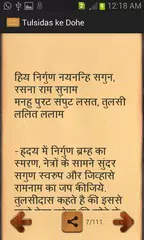 12:18 AM
Tulsidas ke Dohe
हिय निर्गुण नयनन्हि सगुन,
रसना राम सुनाम
मनहु पुरट संपुट लसत, तुलसी
ललित ललाम
- ह्रदय में निर्गुण ब्रम्ह का
स्मरण, नेत्रों के सामने सुंदर
सगुण स्वरुप और जिव्हासे
रामनाम का जप कीजिये.
तुलसीदास कहते है की इससे
7/111